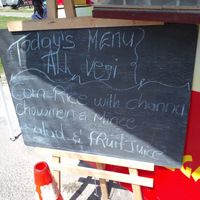 Today's MENU
Ahh vegi
Corn Rice with channa
chowmein & Mince
Salad & fRuit Juice